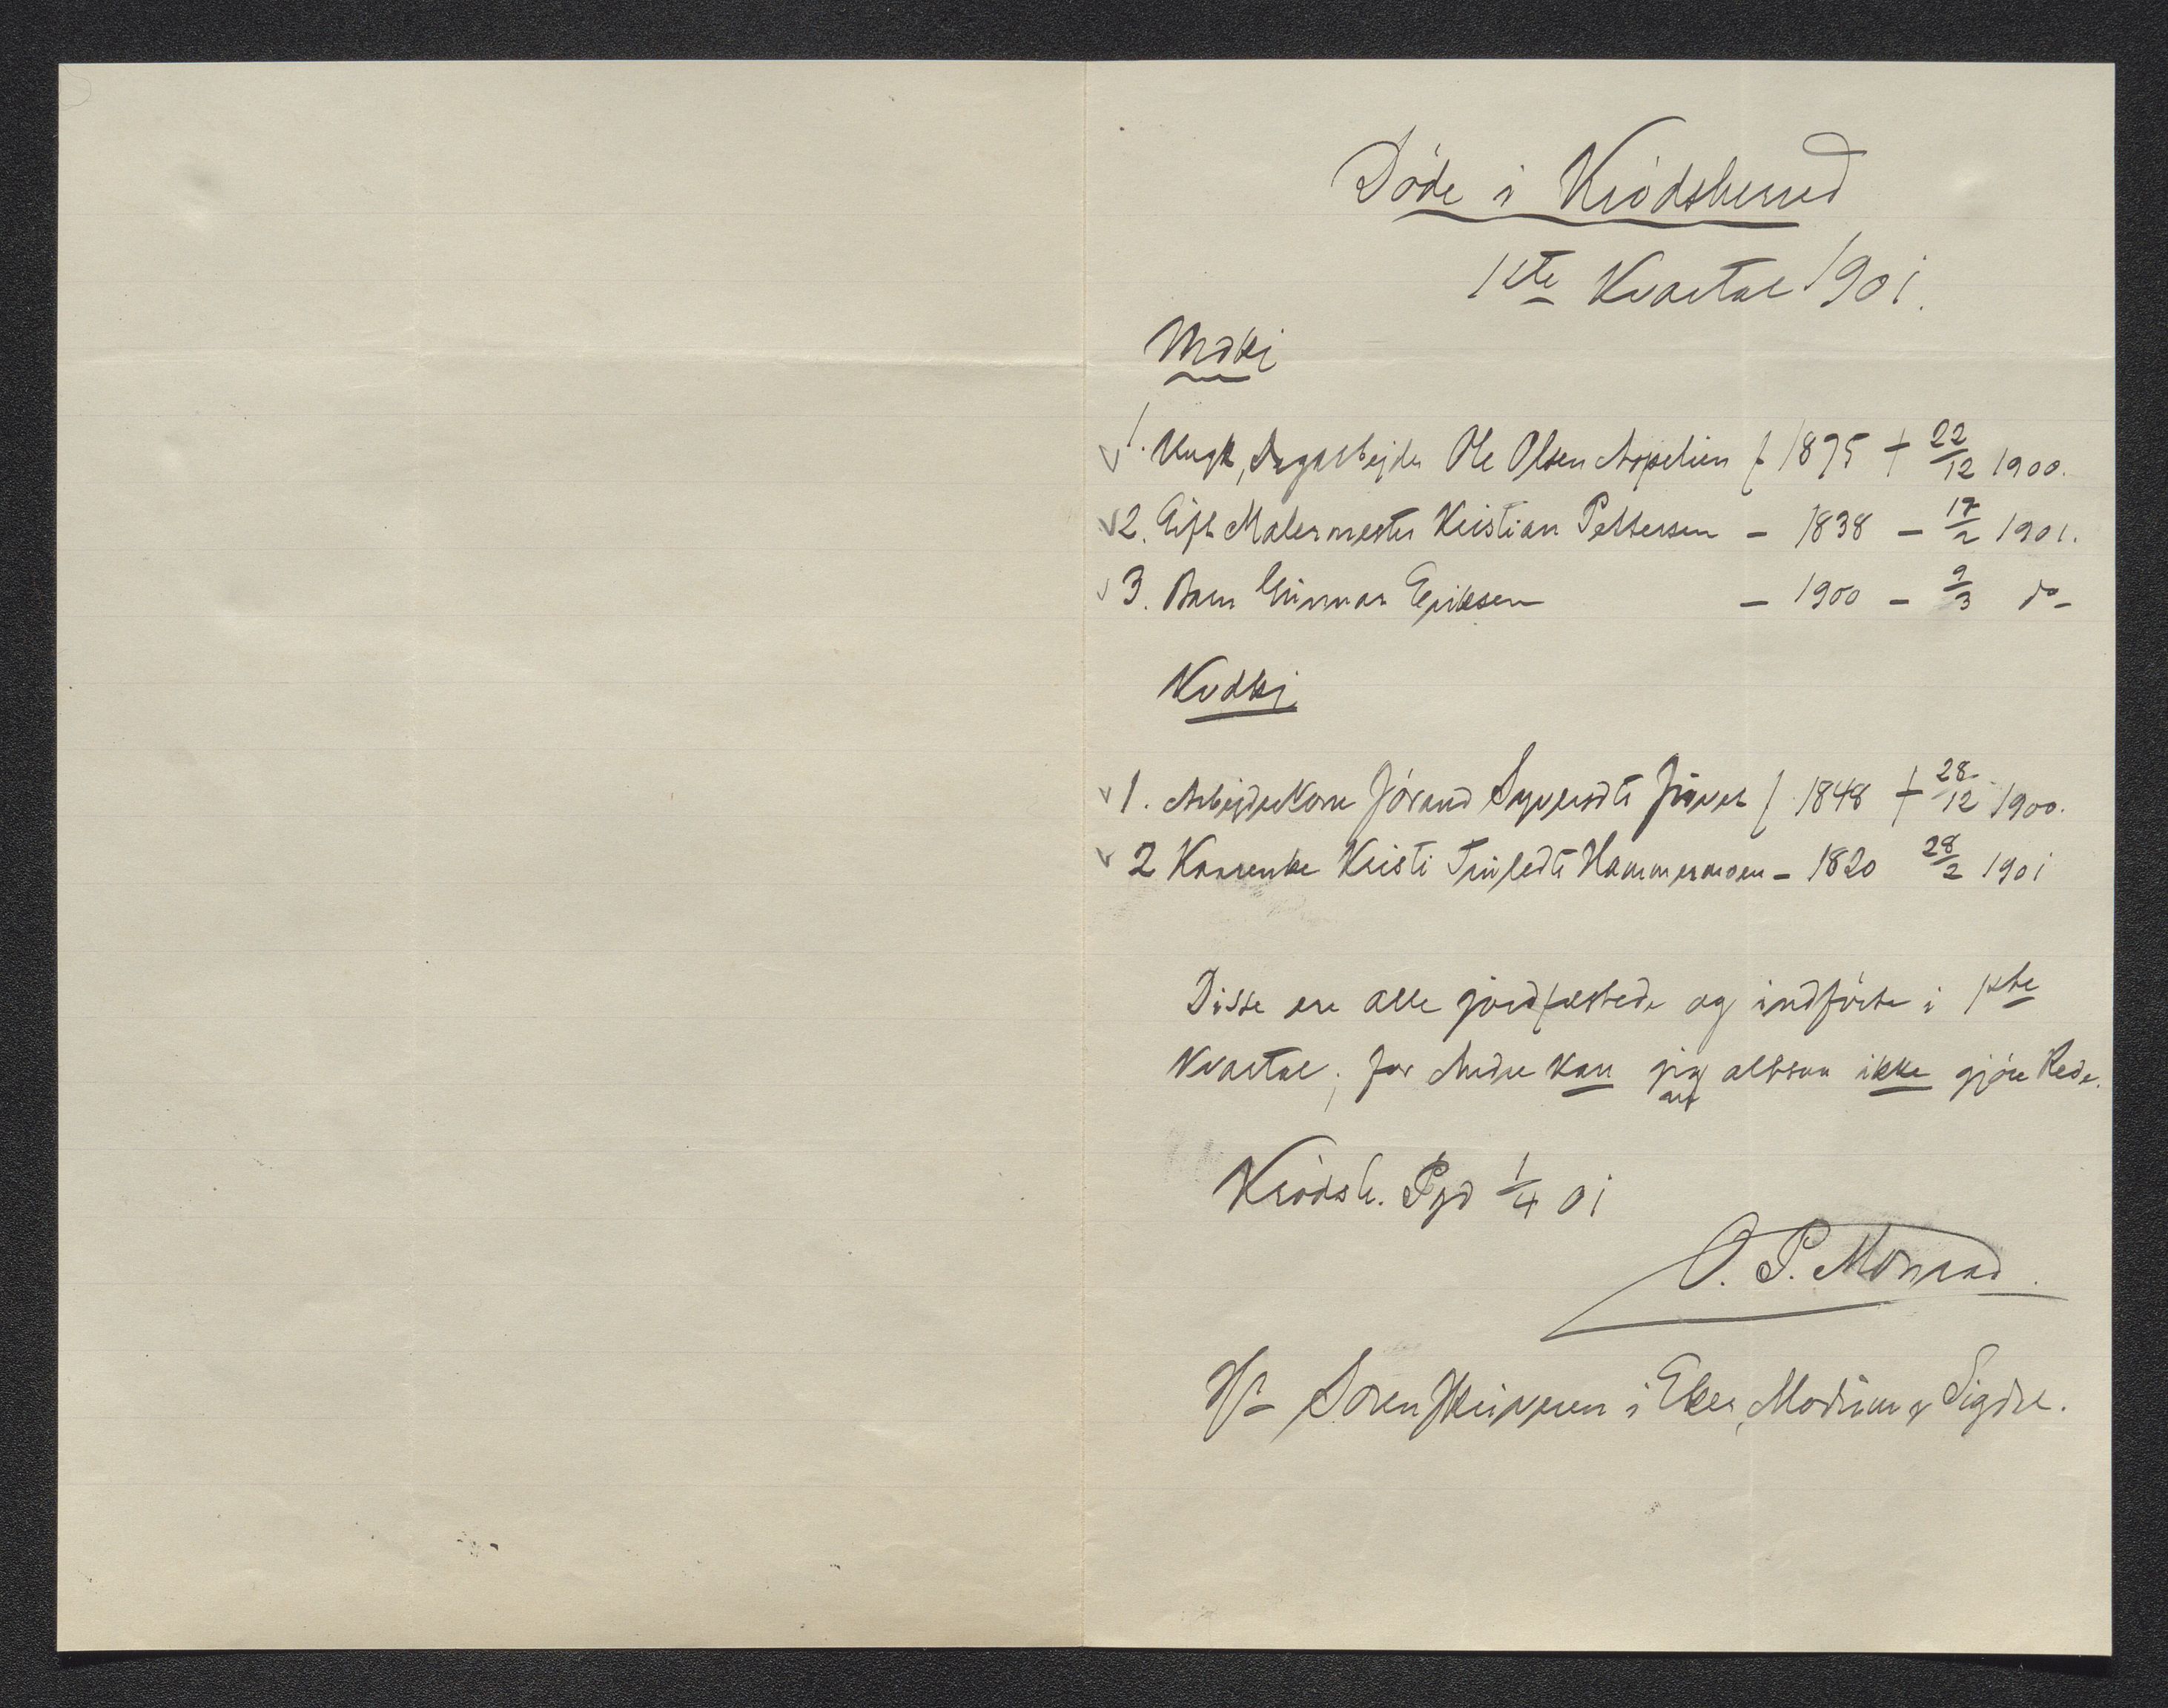 Døde i Krødsherred
1ste Kvartal 1901.
Mdkj
1. Ungk, Dagarbejder Ole Olsen Aspelien f 1875 + 22/12 1900.
2. Gift Malermester Kristian Pettersen – 1838 – 17/2 1901.
3. Barn Gunnar Eriksen – 1900 – 9/3 do –
Kvdkj
1. Arbejderkone Jórand Syversdt f 1848 + 28/12 1900.
2 Kaarenke Kristi Trulsdt Hammermoen – 1820 28/2 1901
Disse ere alle jordfæstede og indførte i 1ste
Kvartal; for Andre kan jeg altsaa ikke gjøre Rede.
Krødsh. Pgd 1/4 01
O. P. Monrad.
Hr Sorenskriveren i Eker, Modum & Sigdal.